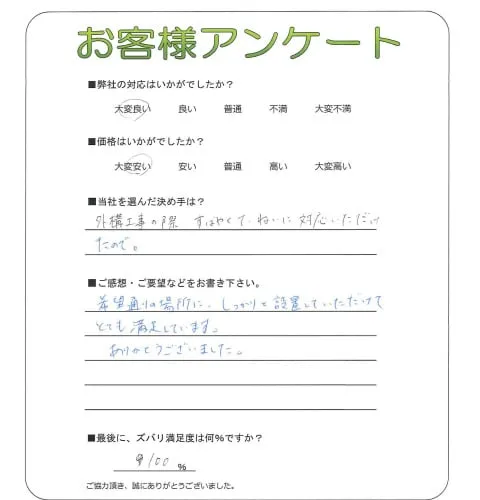 お客様アンケート
■弊社の対応はいかがでしたか？
大変良い 良い 普通 不満 大変不満
■価格はいかがでしたか？
大変安い 安い 普通 高い 大変高い
■当社を選んだ決め手は？
外構工事の際 すばやくていねいに対応いただけ
たので。
■ご感想・ご要望などをお書き下さい。
希望通りの場所に、しっかりと設置していただけて
とても満足しています。
ありがとうございました。
■最後に、ズバリ満足度は何%ですか？
100 %
ご協力頂き、誠にありがとうございました。